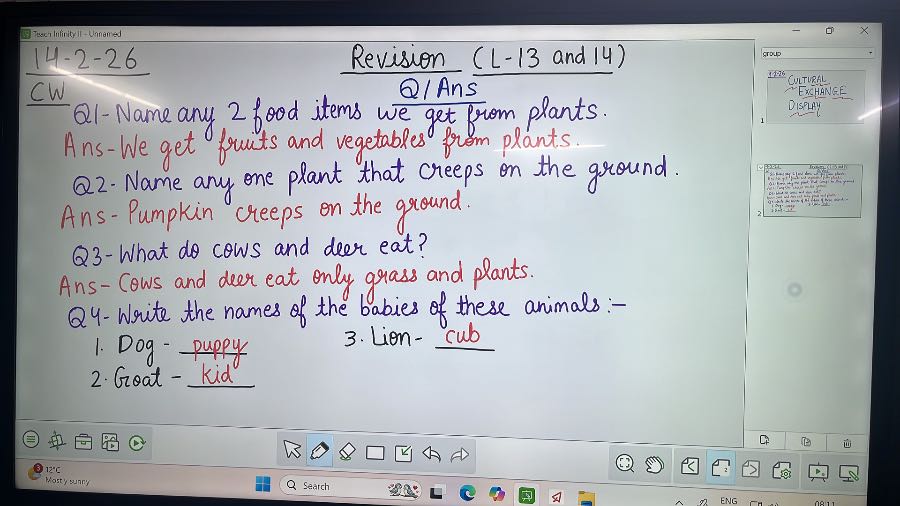 Teach Infinity II - Unnamed
14-2-26
Revision (L-13 and 14)
CW
Q/Ans
Q1- Name any 2 food items we get from plants.
Ans- We get fruits and vegetables from plants.
Q2- Name any one plant that creeps on the ground.
Ans- Pumpkin creeps on the ground.
Q3- What do cows and deer eat?
Ans- Cows and deer eat only grass and plants.
Q4- Write the names of the babies of these animals :-
1. Dog - puppy
3. Lion - cub
2. Goat - kid
group
CULTURAL
EXCHANGE
DISPLAY
1
2
3
12°C
Mostly sunny
Search
ENG
08:11